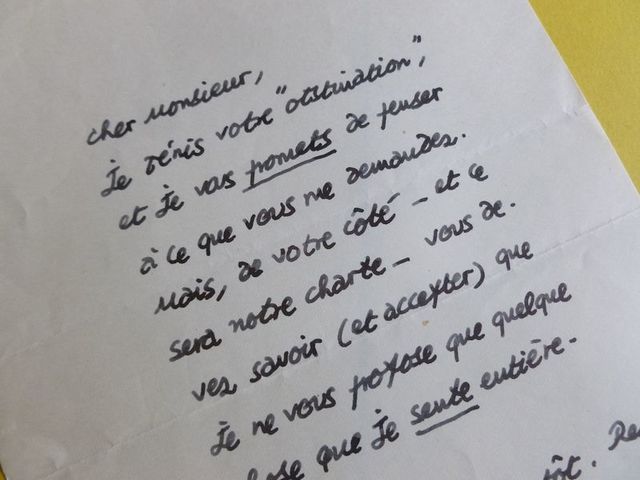 cher Monsieur,
Je bénis votre "obstination",
et je vous promets de penser
à ce que vous me demandez.
Mais, de votre côté - et ce
sera notre charte - vous de-
vez savoir (et accepter) que
je ne vous propose que quelque
chose que je sente entière-
tôt. Re